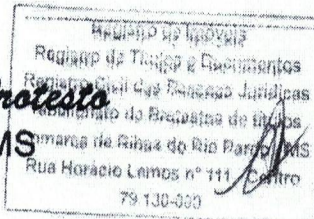 Registro de Imóveis
Registro de Títulos e Documentos
Registro Civil das Pessoas Jurídicas
rotesto
Tabelionato de Protestos de títulos
MS
omarca de Ribas do Rio Pardo MS
Rua Horácio Lemos nº 111 Centro
79.130-000